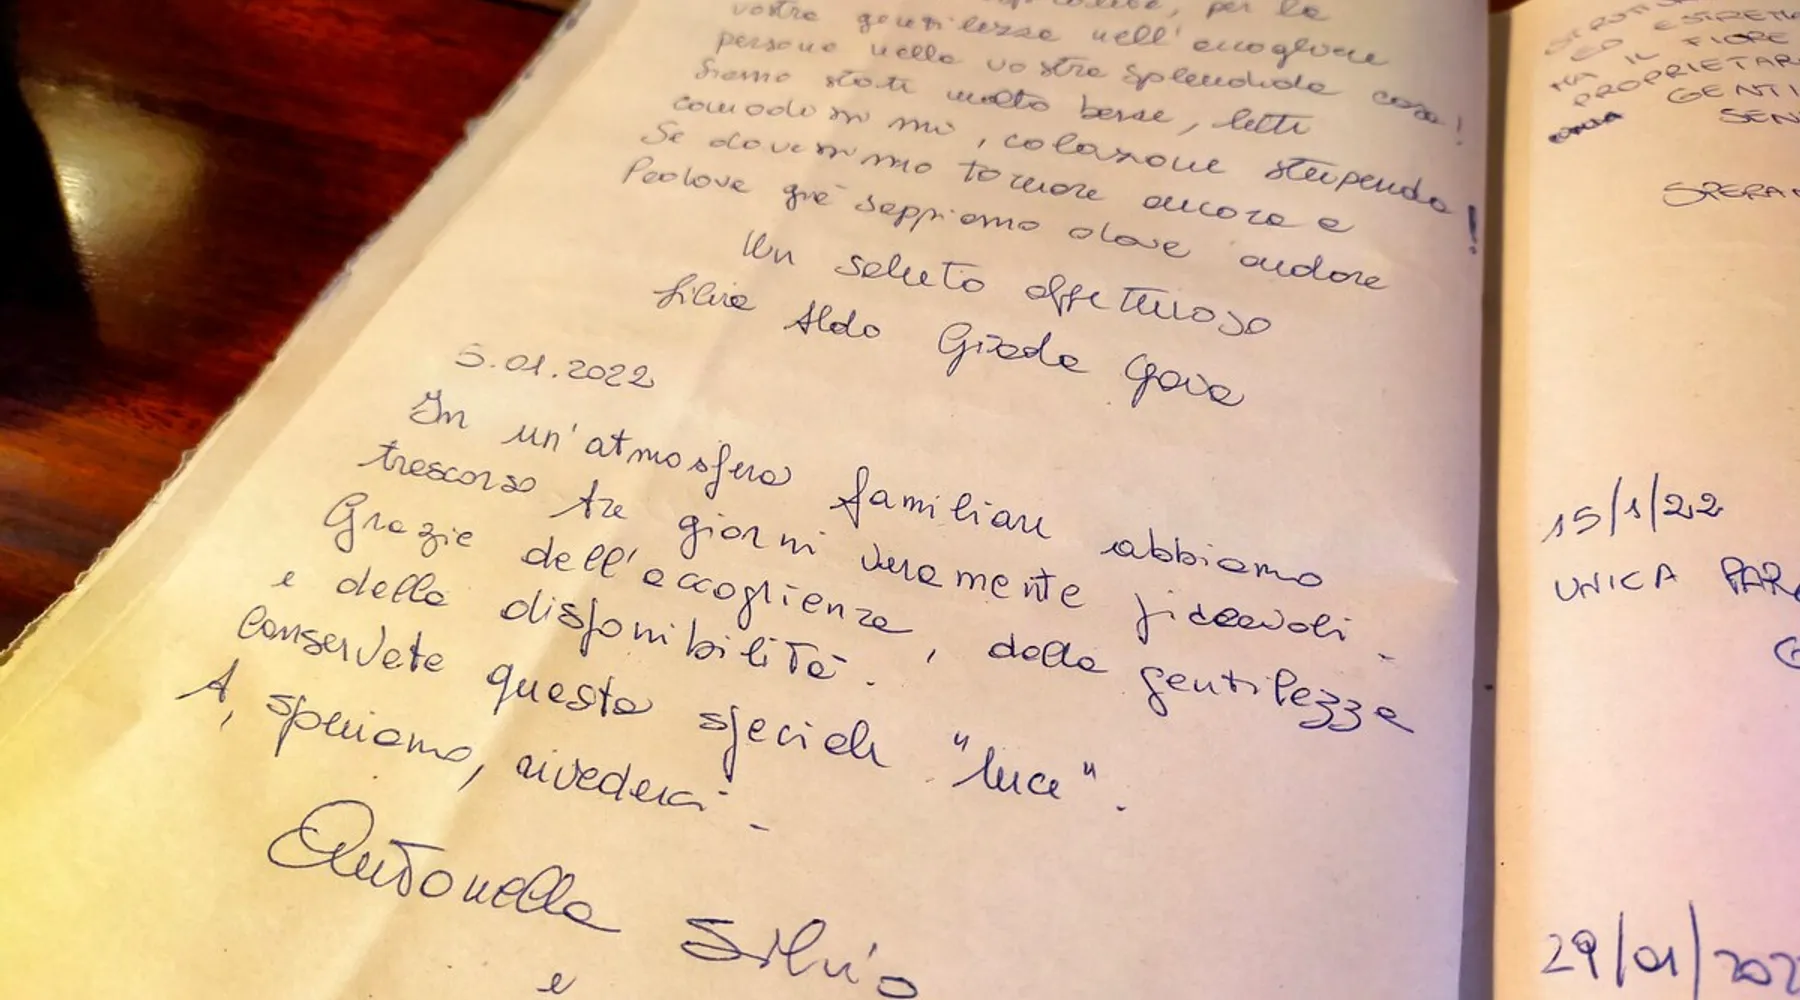 per la
vostra gentilezza nell'accogliere
persone nella vostra splendida casa!
Siamo stati molto bene, letti
comodissimi, colazione stupenda!
Se dovessimo tornare ancora a
Padova già sappiamo dove andare
Un saluto affettuoso
Silvia Aldo Giada Gava
5.01.2022
In un'atmosfera familiare abbiamo
trascorso tre giorni veramente piacevoli.
Grazie dell'accoglienza, della gentilezza
e della disponibilità.
Conservate questa speciale "luce".
A, speriamo, rivederci.
Antonella
e Silvio
ED ESTREM
MA IL FIORE
PROPRIETAR
GENTI
SEN
SPERA
15/1/22
UNICA PAR
29/01/202